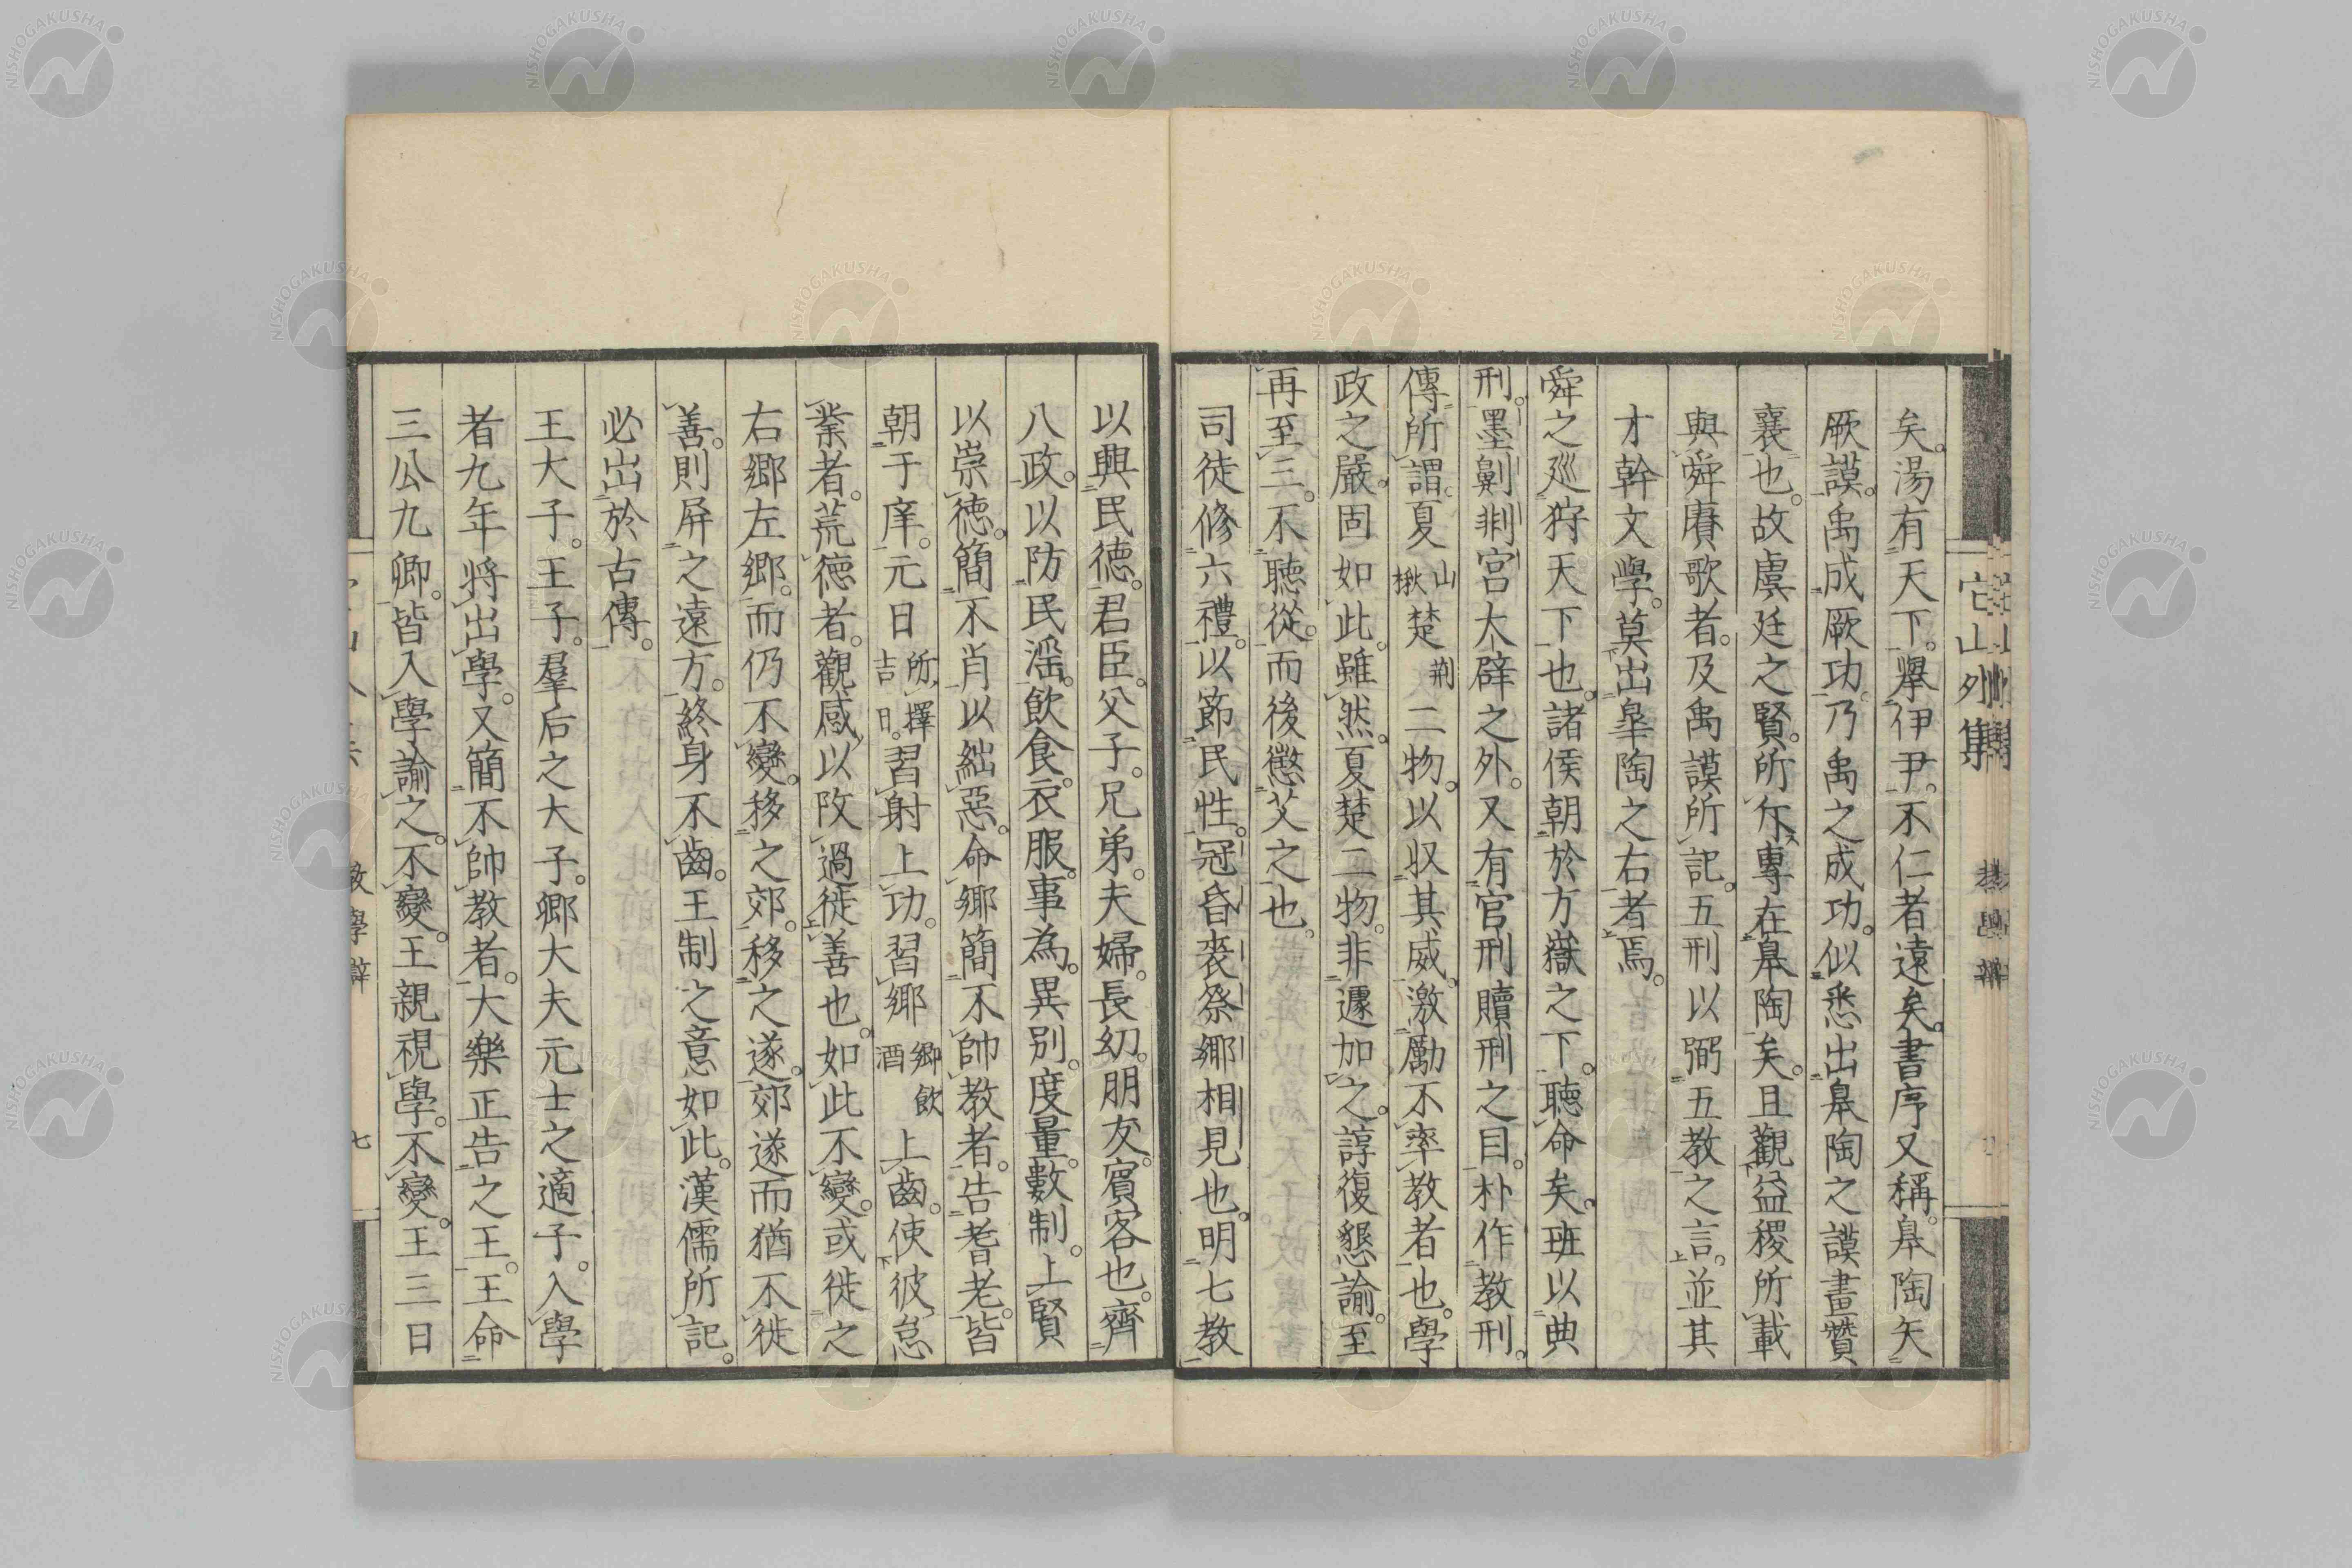 矣。湯有天下。擧伊尹。不仁者遠矣。書序又稱。臯陶矢
厥謨。禹成厥功。乃禹之成功。似悉出臯陶之謨畫贊
襄也。故虞廷之賢。所尓專在臯陶矣。且觀益稷所載
與舜賡歌者。及禹謨所記。五刑以弼五教之言。並其
才幹文學。莫出臯陶之右者焉。
舜之廵狩天下也。諸侯朝於方嶽之下。聽命矣。班以典
刑。墨劓剕宮大辟之外。又有官刑贖刑之目。朴作教刑。
傳所謂。夏山楸楚荆二物。以収其威。激勵不率教者也。學
政之嚴。固如此。雖然。夏楚二物。非遽加之。諄復懇諭。至
再至三。不聽從。而後懲艾之也。
司徒修六禮。以節民性。冠昏喪祭鄉相見也。明七教
以興民德。君臣。父子。兄弟。夫婦。長幼。朋友。賓客也。齊
八政。以防民淫。飲食。衣服。事為。異別。度量。數制。上賢
以崇徳。簡不肖以絀惡。命鄉簡不帥教者。告耆老。皆
朝于庠。元日所擇吉日。習射上功。習鄉鄉飲酒上齒。使彼怠
業者。荒徳者。觀感以攺過徙善也。如此不變。或徙之
右鄉左鄉。而仍不變。移之郊。移之遂。郊遂而猶不徙
善。則屏之遠方。終身不齒。王制之意如此。漢儒所記。
必出於古傳。
王大子。王子。羣后之大子。卿大夫元士之適子。入學
者九年將出學。又簡不帥教者。大樂正告之王。王命
三公九卿。皆入學諭之。不變。王親視學。不變。王三日
教學辯
七